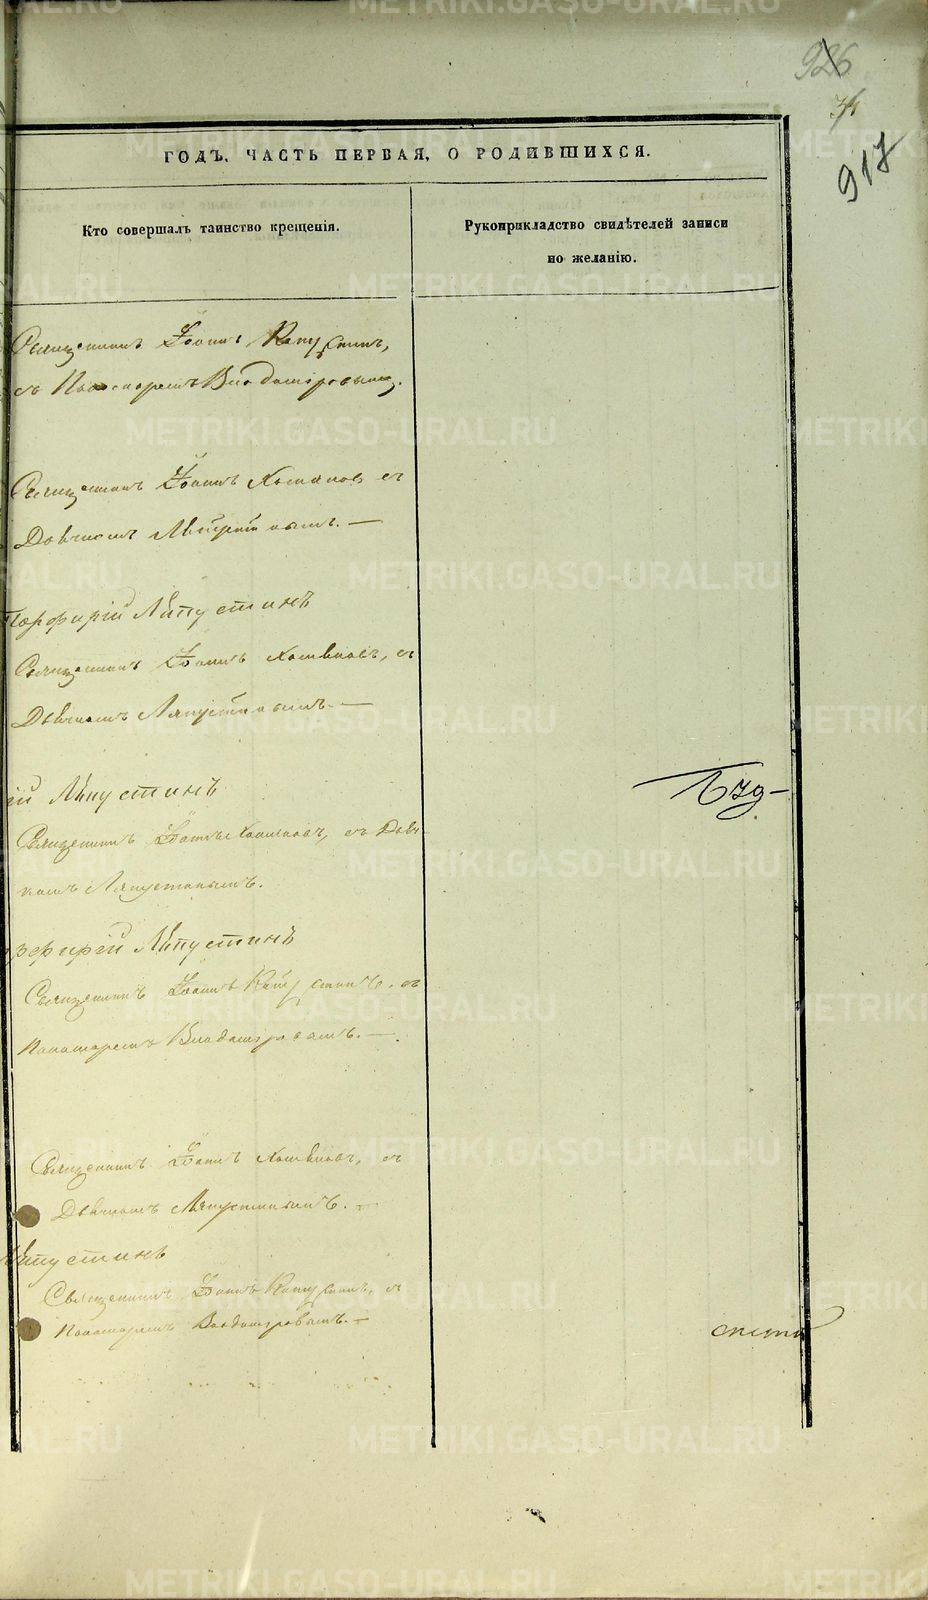 926
34
917
ГОДЪ, ЧАСТЬ ПЕРВАЯ, О РОДИВШИХСЯ.
Кто совершалъ таинство крещенія.
Рукоприкладство свидѣтелей записи
по желанію.
Священникъ Іоаннъ Капустинъ,
съ Пономаремъ Владиміровымъ.
Священникъ Іоаннъ съ
Дьячкомъ —
Порфирій Ляпустинъ
Священникъ Іоаннъ съ
Дьячкомъ Ляпустинымъ. —
ій Ляпустинъ
Священникъ Іоаннъ съ Дьяч-
комъ Ляпустинымъ.
рфирій Ляпустинъ
Священникъ Іоаннъ Капустинъ. съ
Пономаремъ Владиміровымъ. —
Священникъ Іоаннъ съ
Дьячкомъ Ляпустинымъ. —
Ляпустинъ
Священникъ Іоаннъ Капустинъ, съ
Пономаремъ Владиміровымъ. —
METRIKI.GASO-URAL.RU